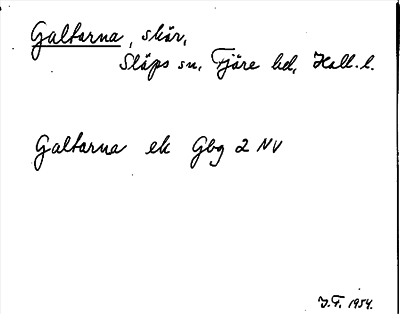 Galtarna, skär,
Släps sn, Fjäre hd, Hall. l.
Galtarna ek Gbg 2 NV
J.F. 1954.